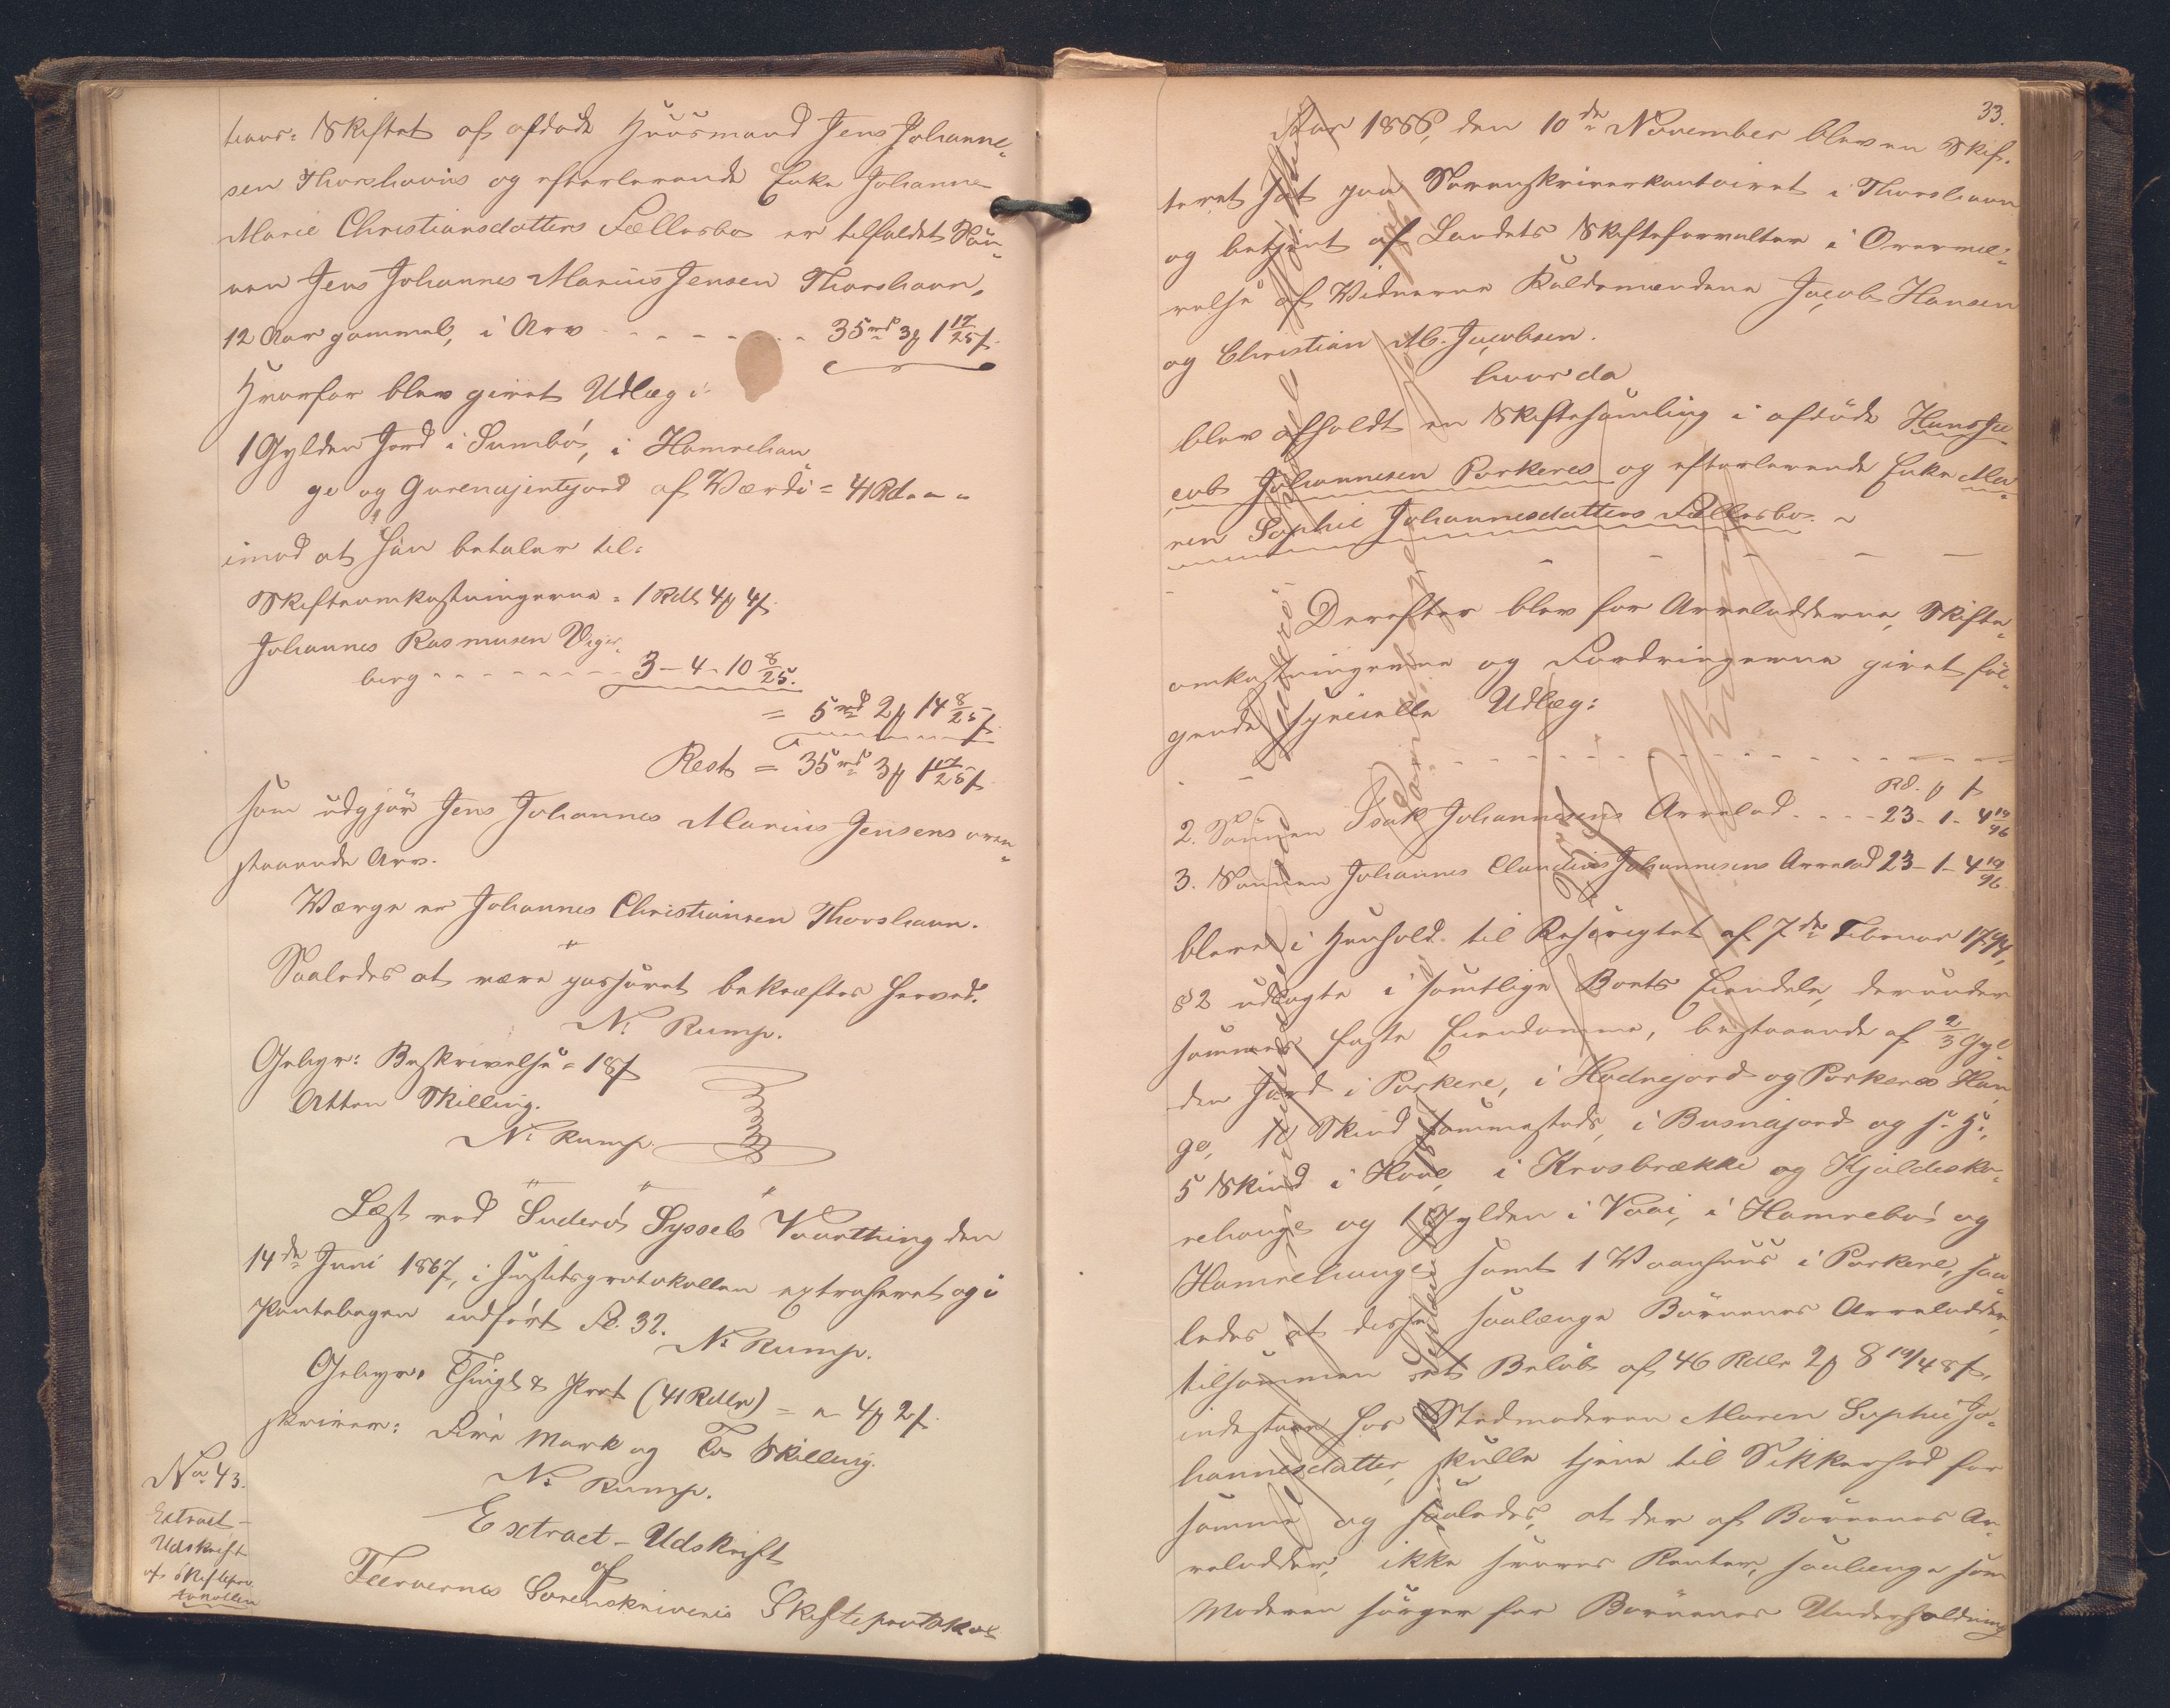 havn: Skiftet af afdøde Huusmand Jens Johanne-
sen Thorshavns og efterlevende Enke Johanne
Marie Christiansdatters Fællesbo er tilfaldet Søn-
nen Jens Johannes Marius Jensen Thorshavn,
12 Aar gammel, i Arv - - - - - - 35 rd 3 ꝳ 1 17/25 ß.
Hvorfor blev givet Udlæg i:
1 Gylden Jord i Sumbø, i Hamrehau
ge og Gurenajentjord af Værdi = 41 Rd. - -
imod at han betaler til:
Skifteomkostningerne = 1 Rdl 4 ꝳ 4 ß.
Johannes Rasmusen Vejer-
berg - - - - - - - 3 - 4 - 10 8/25.
= 5 rd 2 ꝳ 14 8/25 ß.
Rest = 35 rd 3 ꝳ 1 17/25 ß.
som udgjør Jens Johannes Marius Jensens oven-
staaende Arv.
Værge er Johannes Christiansen Thorshavn.
Saaledes at være passeret bekræftes herved.
N. Rump.
Gebyr: Beskrivelse = 18 ß
Atten Skilling.
N. Rump.
Læst ved Suderø Syssels Vaarthing den
14de Juni 1867, i Justitsprotokollen extraheret og i
Pantebogen indført Fol. 32.
N. Rump.
Gebyr: Thingl & Prot (41 Rdlr) = - 4 ꝳ 2 ß.
skriver: Fire Mark og To Skilling.
N. Rump.
No 43.
Extract-
Udskrift
af Skiftepro
tokollen
Extract-Udskrift
af
Færøernes Sorenskriveris Skifteprotokol
33.
Aar 1866, den 10de November blev en Skif-
teret sat paa Sorenskriverkontoiret i Thorshavn
og betjent af Landets Skifteforvalter i Overvæ-
relse af Vidnerne Kaldsmændene Jacob Hansen
og Christian M. Jacobsen.
hvor da
blev afholdt en Skiftesamling i afdøde Hans Ja-
cob Johannesen Porkeres og efterlevende Enke Ma-
ren Sophie Johannesdatters Fællesbo. -
Derefter blev for Arvelodderne, Skifte-
omkostningerne og Fordringerne givet føl-
gende specielle Udlæg:
Rd. ꝳ ß
2. Sønnen Isak Johannesens Arvelod - - - - 23 - 1 - 4 19/96
3. Sønnen Johannes Claudius Johannesens Arvelod 23 - 1 - 4 19/96
bleve i Henhold til Rescriptet af 7de Februar 1794,
§ 2 udlagte i samtlige Boets Eiendele, derunder
sammes faste Eiendomme, bestaaende af 2/3 Gyl
den Jord i Porkere, i Hodnejord og Porkeres Hau
ge, 10 Skind sammesteds, i Busnajord og s. H.,
5 Skind i Hove, i Krosbrække og Kjeldesko-
rehauge og 1 Gylden i Vaai, i Hamrebø og
Hamrehauge samt 1 Vaanhuus i Porkere, saa
ledes at disse saalænge Børnenes Arvelodder,
tilsammen et Beløb af 46 Rdlr 2 ꝳ 8 19/48 ß,
indestaae hos Stedmoderen Maren Sophie Jo-
hannesdatter, skulle tjene til Sikkerhed for
samme og saaledes, at der af Børnenes Ar-
velodder, ikke svares Renter, saalænge som
Moderen sørger for Børnenes Underholdning